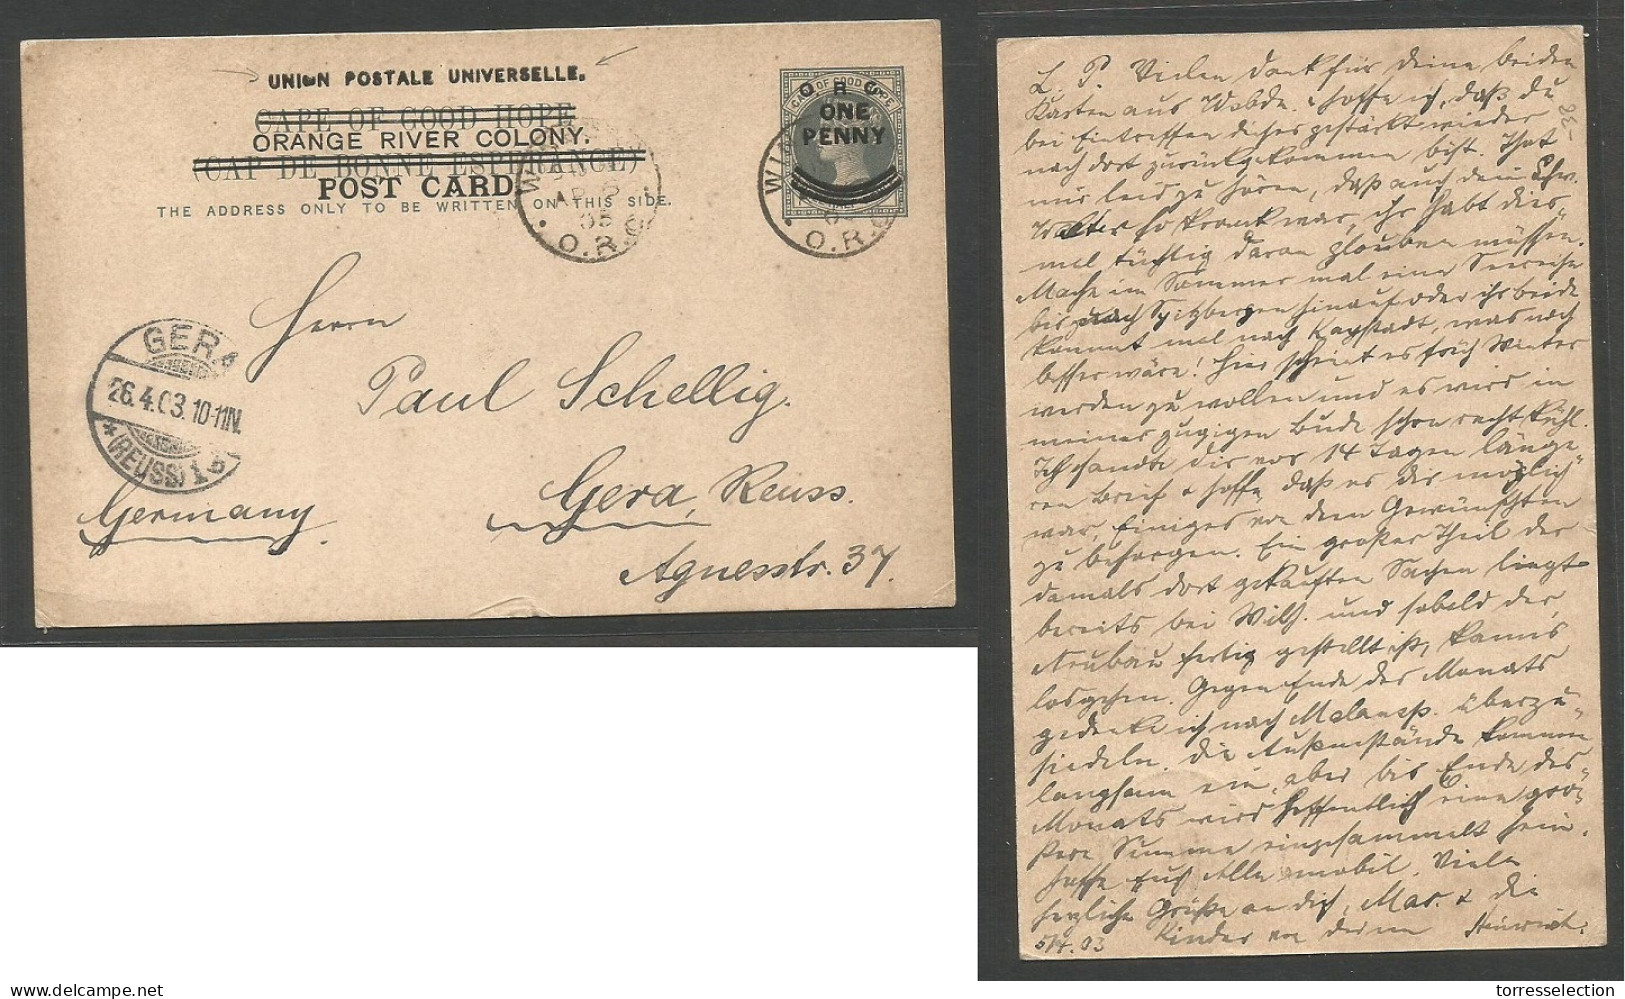 UNION POSTALE UNIVERSELLE.
CAPE OF GOOD HOPE
ORANGE RIVER COLONY.
(CAP DE BONNE ESPERANCE)
POST CARD.
THE ADDRESS ONLY TO BE WRITTEN ON THIS SIDE.
CAPE OF GOOD HOPE
O R C
ONE
PENNY
AP
03
O.R.C
O.R.C
GERA
26.4.03.10-11N.
(REUSS) 1
Herrn
Paul Schellig.
Gera, Reuss.
Germany.
Agnesstr. 37.
L. P. Vielen Dank für Deine beiden
Karten aus Wobde. hoffe ich, daß Du
bei Eintreffen dieses gestärkt wieder
nach dort zurückgekommen bist. That
mir leid zu hören, daß auch dein Schw.
Walter so krank war, ihr habt dies
mal tüchtig daran glauben müssen.
Mache im Sommer mal eine Seereise
bis nach Spitzbergen hinauf oder ihr beide
kommt mal nach Kapstadt, was noch
besser wäre! Hier scheint es früh Winter
werden zu wollen und es wird in
meiner zugigen Bude schon recht kühl.
Ich sandte dir vor 14 Tagen länge-
ren Brief & hoffe, daß es dir möglich
war, Einiges von dem Gewünschten
zu besorgen. Ein großer Theil der
damals dort gekauften Sachen liegt
bereits bei Wilh. und sobald der
Neubau fertig gestellt ist, kann's
losgehen. Gegen Ende des Monats
gedenke ich nach überzu-
siedeln. Die Außenstände kommen
langsam ein, aber bis Ende des
Monats wird hoffentlich eine grö-
ßere Summe eingesammelt sein.
Hoffe Euch Alle mobil. Viele
herzliche Grüße an dich, Mar. & die
Kinder von deinem Heinrich.
5/4.03
torresselection